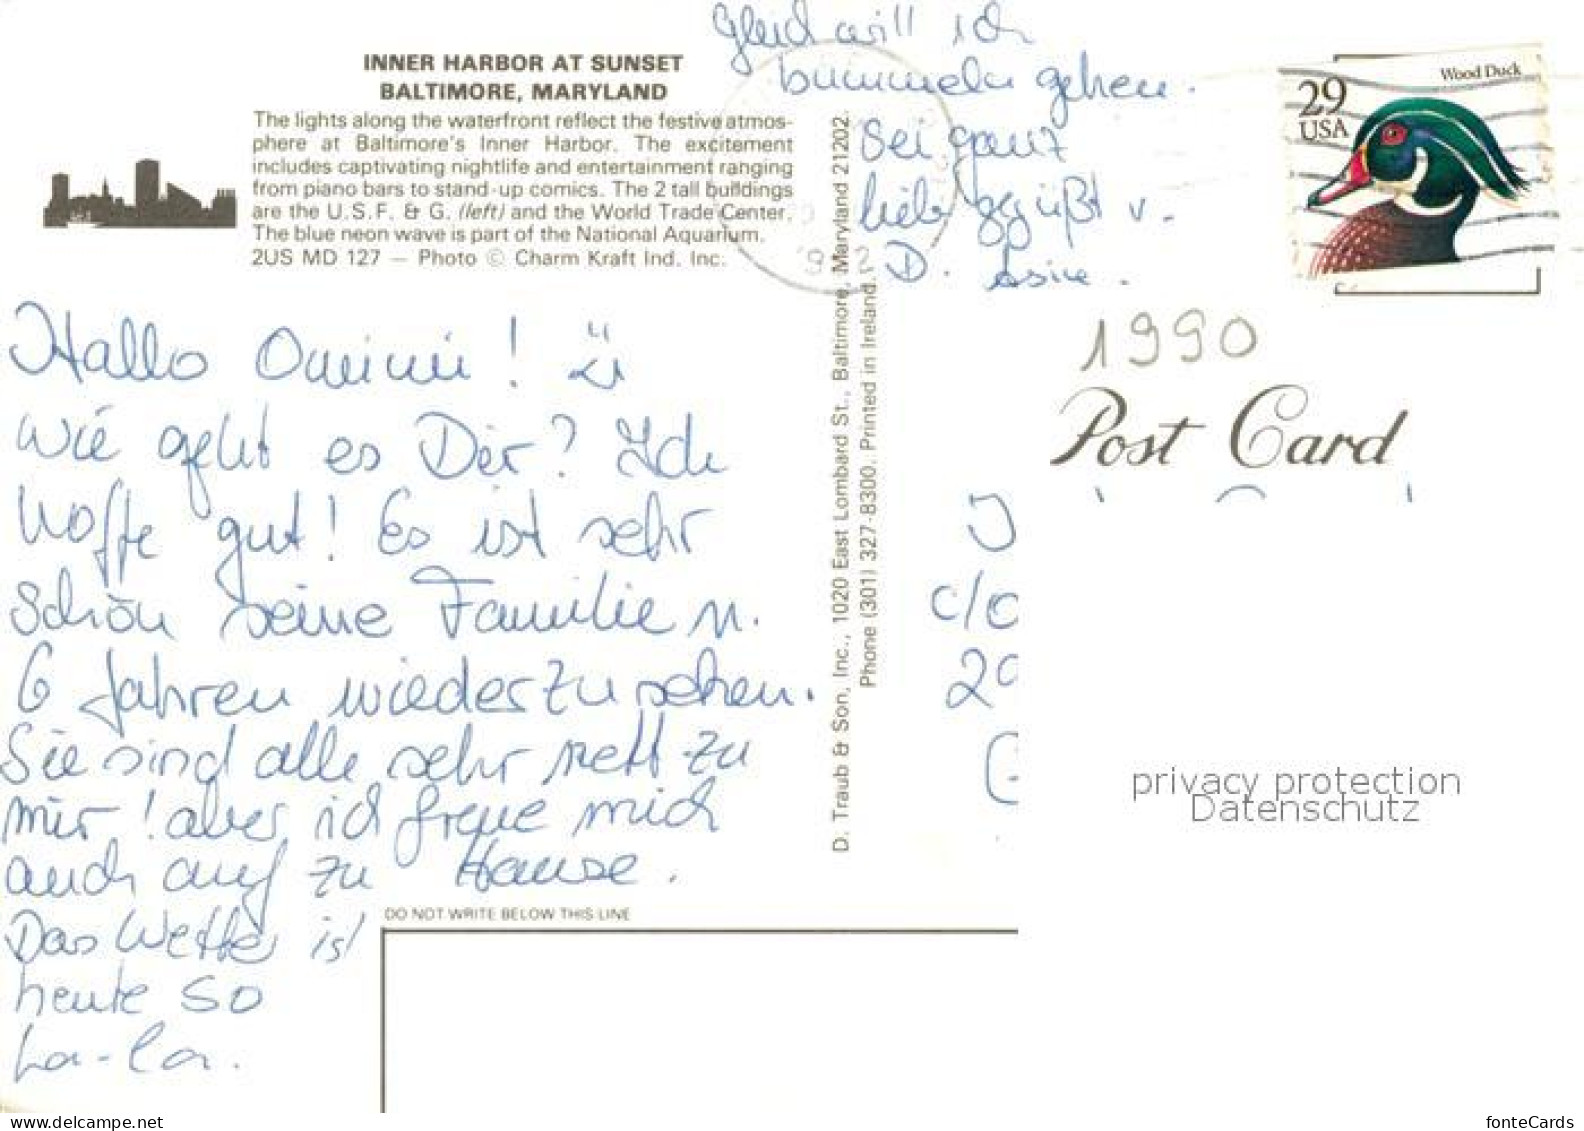 INNER HARBOR AT SUNSET
BALTIMORE, MARYLAND
The lights along the waterfront reflect the festive atmos-
phere at Baltimore's Inner Harbor. The excitement
includes captivating nightlife and entertainment ranging
from piano bars to stand-up comics. The 2 tall buildings
are the U.S.F. & G. (left) and the World Trade Center.
The blue neon wave is part of the National Aquarium.
2US MD 127 — Photo © Charm Kraft Ind. Inc.
Hallo Omimi!
Wie geht es Dir? Ich
hoffe gut! Es ist sehr
schön seine Familie n.
6 Jahren wiederzusehen.
Sie sind alle sehr nett zu
mir! aber ich freue mich
auch auf zu Hause.
Das Wetter ist
heute so
la-la.
Gleich will ich
bummeln gehen.
Sei ganz
lieb gegrüßt v.
D.
D. Traub & Son, Inc., 1020 East Lombard St., Baltimore, Maryland 21202.
Phone (301) 327-8300. Printed in Ireland.
Wood Duck
29
USA
1990
Post Card
c/o
privacy protection
Datenschutz
DO NOT WRITE BELOW THIS LINE
www.delcampe.net
fonteCards